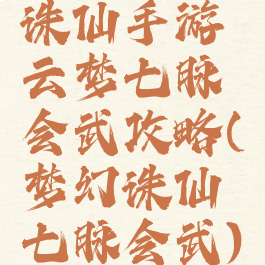 诛仙手游
云梦七脉
会武攻略(
梦幻诛仙
七脉会武)